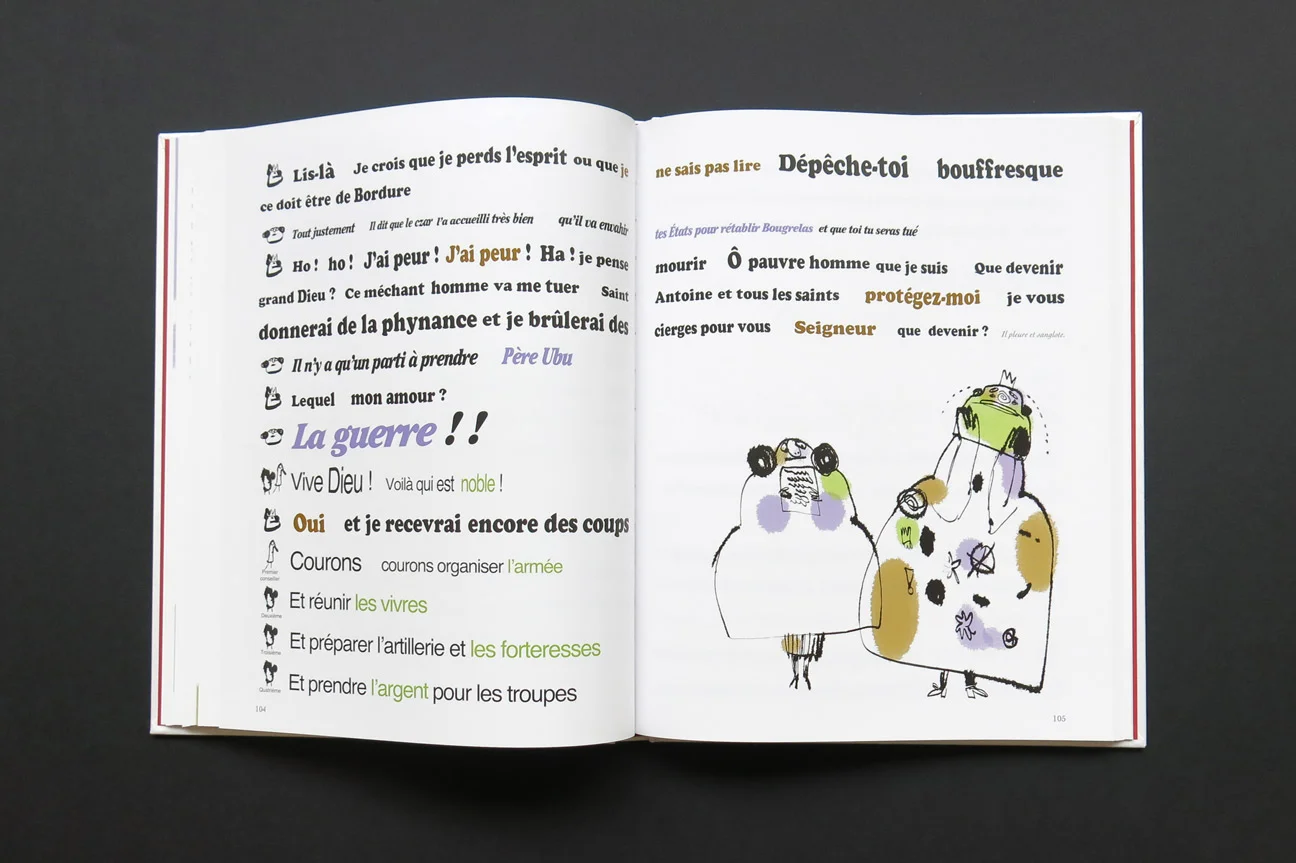 Lis-là Je crois que je perds l'esprit ou que je ne sais pas lire Dépêche-toi bouffresque
ce doit être de Bordure
Tout justement Il dit que le czar l'a accueilli très bien qu'il va envahir tes États pour rétablir Bougrelas et que toi tu seras tué
Ho ! ho ! J'ai peur ! J'ai peur ! Ha ! je pense mourir Ô pauvre homme que je suis Que devenir
grand Dieu ? Ce méchant homme va me tuer Saint Antoine et tous les saints protégez-moi je vous
donnerai de la phynance et je brûlerai des cierges pour vous Seigneur que devenir ? Il pleure et sanglote.
Il n'y a qu'un parti à prendre Père Ubu
Lequel mon amour ?
La guerre ! !
Vive Dieu ! Voilà qui est noble !
Oui et je recevrai encore des coups
Premier conseiller
Courons courons organiser l'armée
Deuxième
Et réunir les vivres
Troisième
Et préparer l'artillerie et les forteresses
Quatrième
Et prendre l'argent pour les troupes
104
105